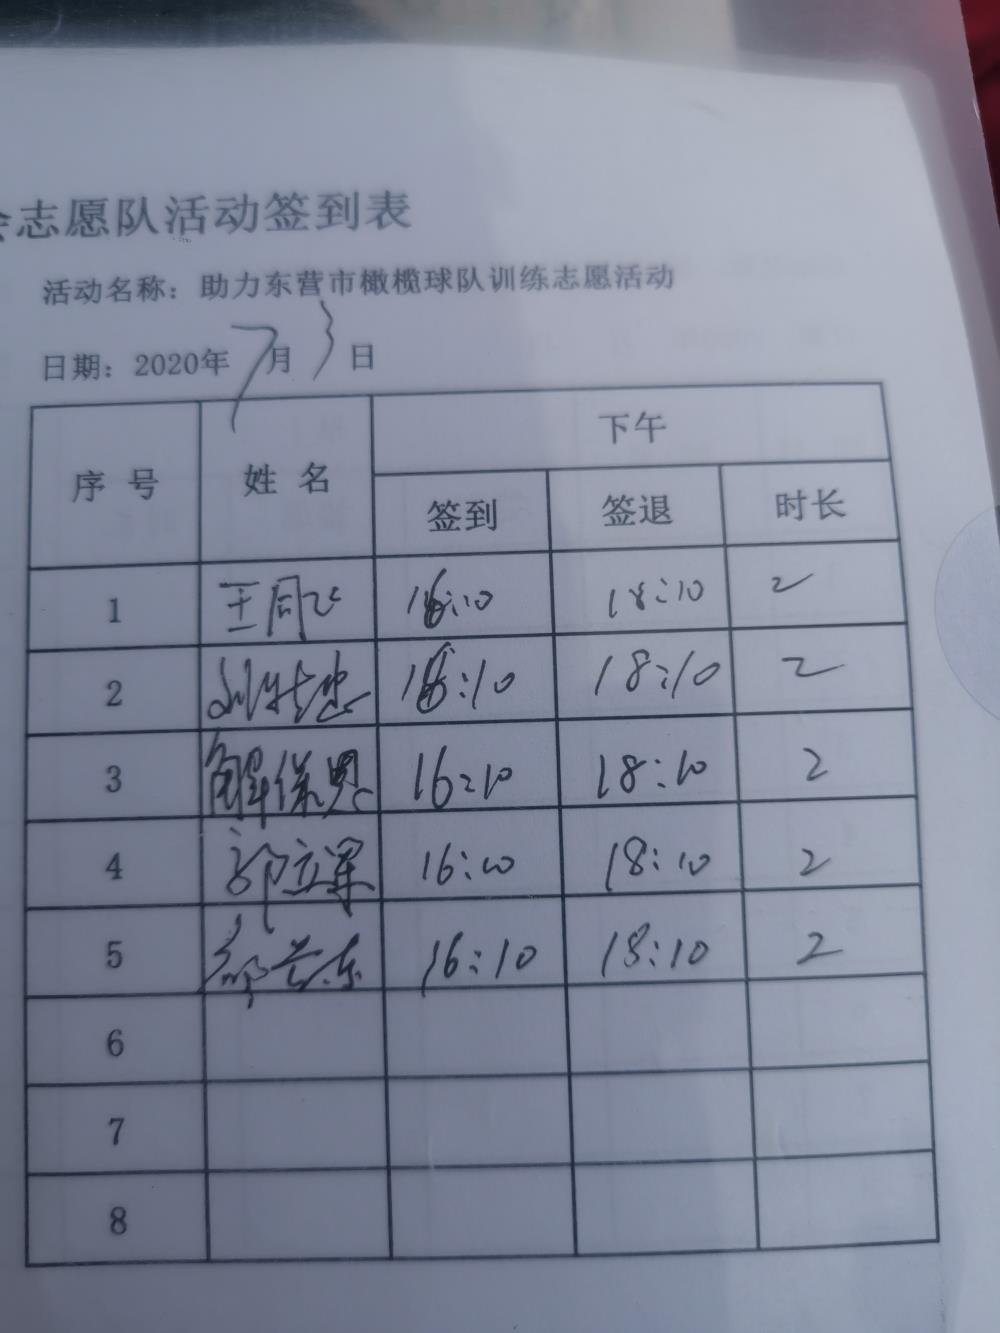 志愿队活动签到表
活动名称：助力东营市橄榄球队训练志愿活动
日期：2020年7月3日
序号 姓名 下午
签到 签退 时长
1 王同 16:10 18:10 2
2 刘 16:10 18:10 2
3 解保恩 16:10 18:10 2
4 郭立军 16:10 18:10 2
5 兰东 16:10 18:10 2
6
7
8